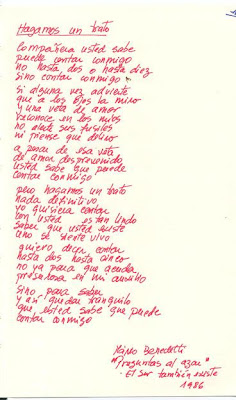 Hagamos un trato
Compañera usted sabe
puede contar conmigo
no hasta dos o hasta diez
sino contar conmigo
si alguna vez advierte
que a los ojos la miro
y una veta de amor
reconoce en los míos
no alerte sus fusiles
ni piense que deliro
a pesar de esa veta
de amor desprevenido
usted sabe que puede
contar conmigo
pero hagamos un trato
nada definitivo
yo quisiera contar
con usted es tan lindo
saber que usted existe
uno se siente vivo
quiero decir contar
hasta dos hasta cinco
no ya para que acuda
presurosa en mi auxilio
sino para saber
y así quedar tranquilo
que usted sabe que puede
contar conmigo
Mario Benedetti
"Preguntas al azar"
El sur también existe
1986